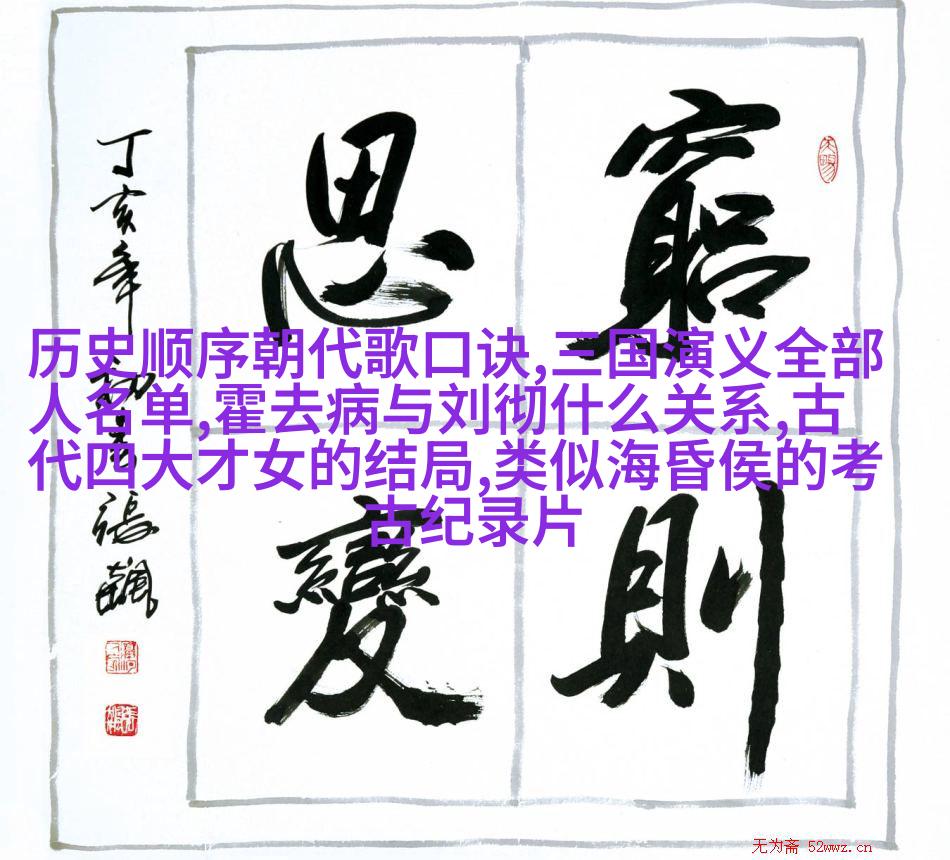 窮則
思變
丁亥年
張飈
历史顺序朝代歌口诀,三国演义全部
人名单,霍去病与刘彻什么关系,古
代四大才女的结局,类似海昏侯的考
古纪录片
无为斋 52wwz.cn